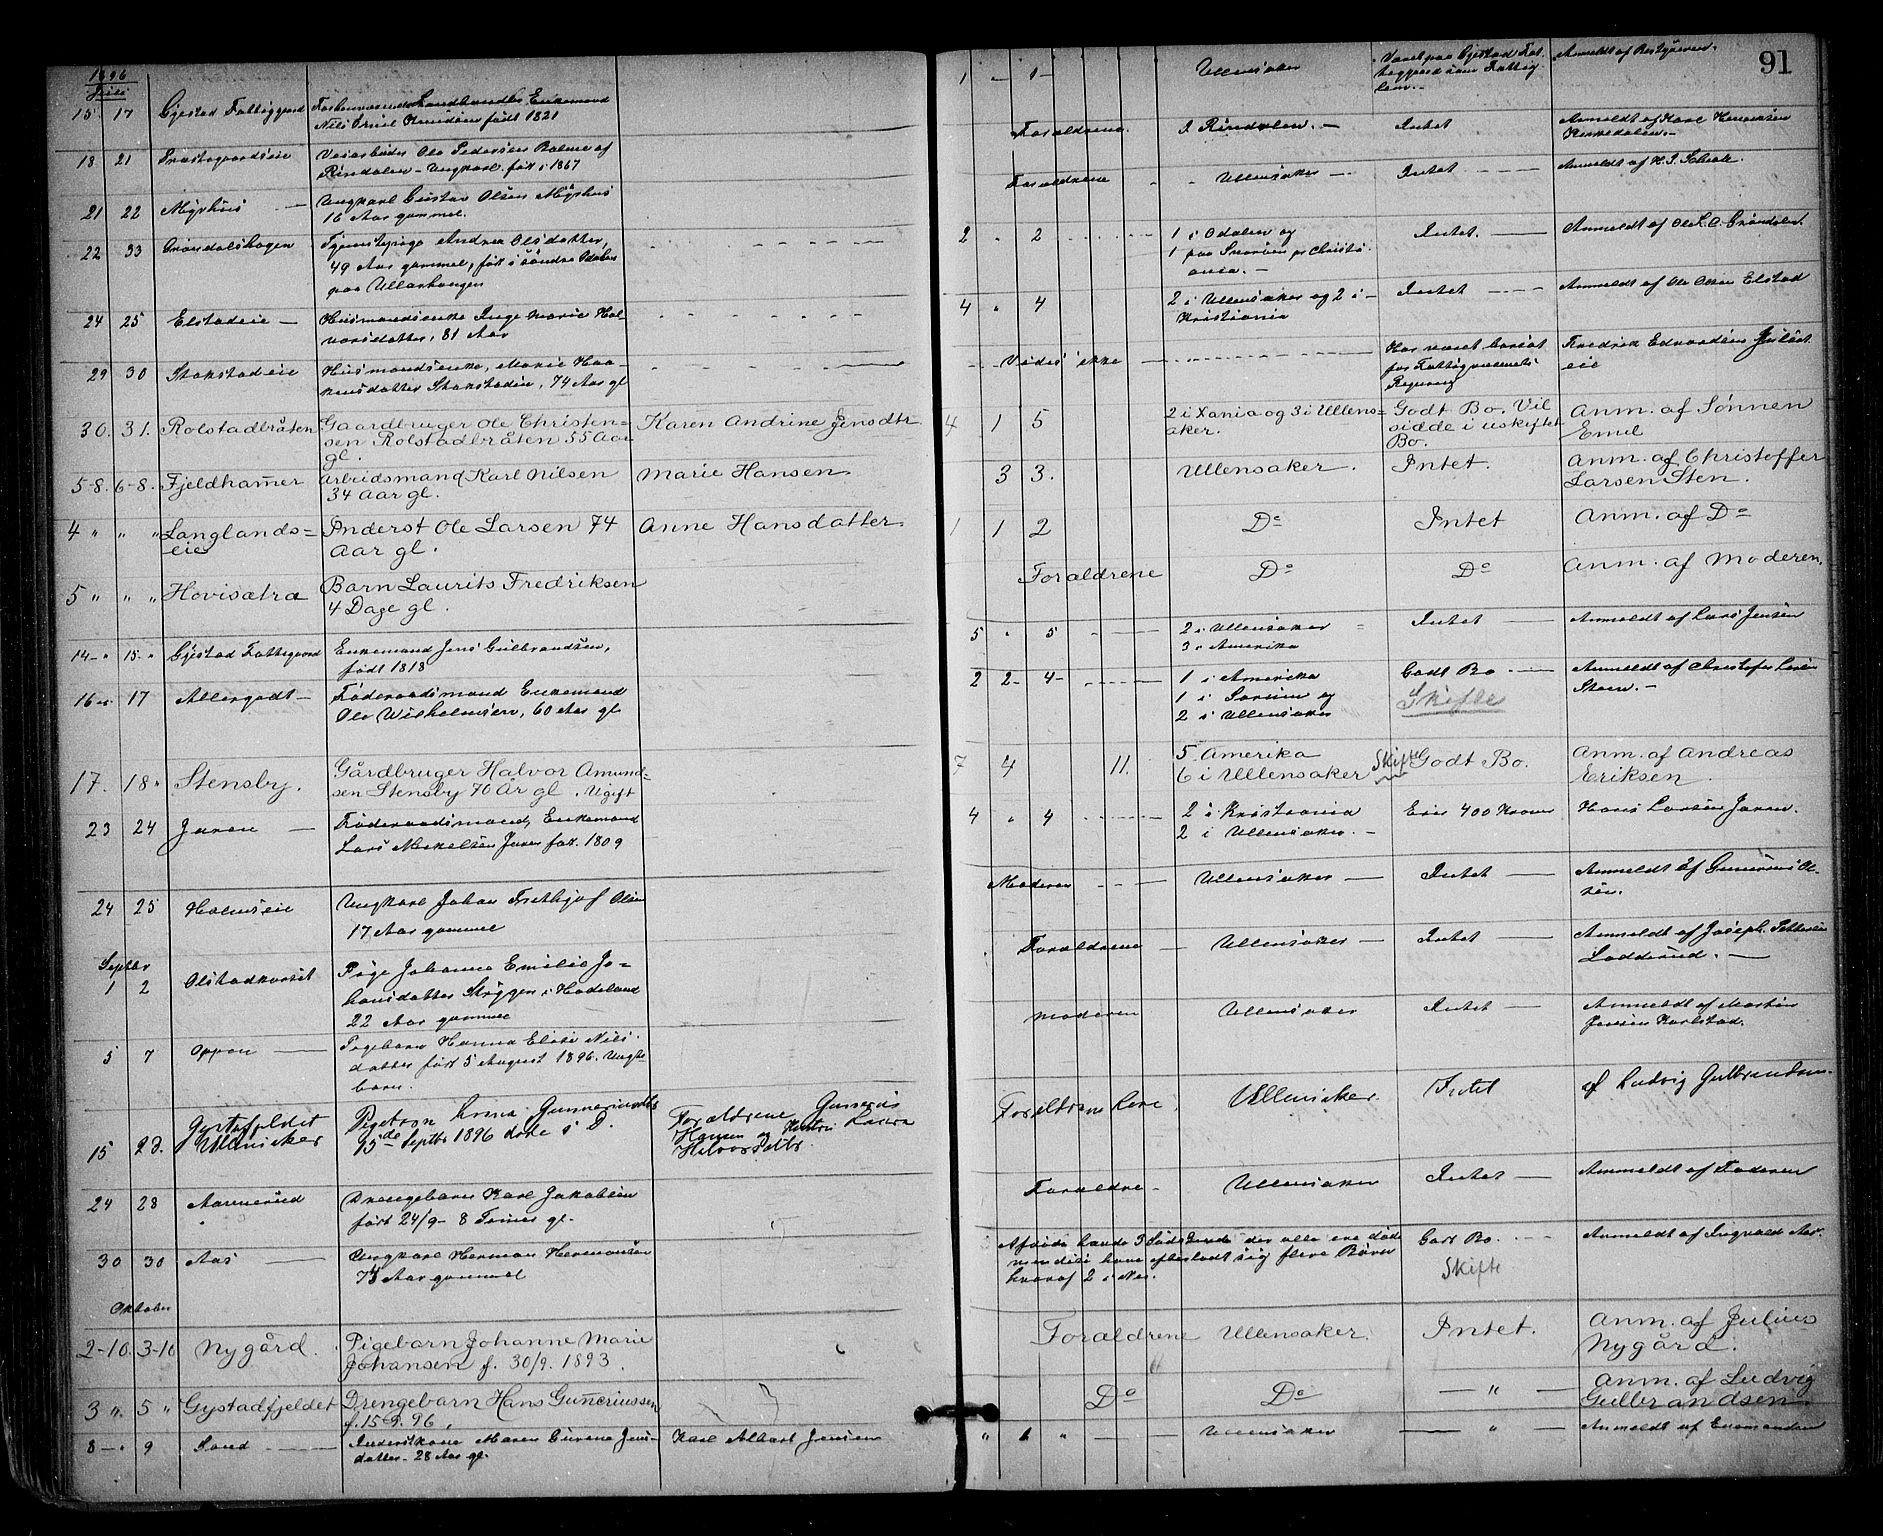 91
1896
Juli
15 17 Gjestad Fattiggaard Forhenværende Landhandler Enkemand
Nils Knudsen født 1821
1 - 1 - Ullensaker Været paa Gjestad Fat-
tiggaard som Fattig-
lem.- Anmeldt af Bestyreren.
18 21 Præstegaardseie Veiarbeider Ole Pedersen af
Rindalen - Ungkarl. født i 1867
Forældrene. I Rindalen. - Intet Anmeldt af Karl Henriksen
21 22 Myrhus - Ungkarl Gustav Olsen Myrhus
16 Aar gammel.
Forældrene - - Ullensaker - Intet - Anmeldt af H. J.
22 33 Grøndalshagen Tjenestepige Andrea Olsdatter,
49 Aar gammel, født i søndre Odalen
paa Ullarhaugen
2 " 2 1 i Odalen og
1 paa Snarøen pr Christi-
ania. - Intet. - Anmeldt af Ole L. O. Grøndalen.
24 25 Elstadeie - Husmandsenke Inge Marie Hal-
vorsdatter, 81 Aar
4 " 4 2 i Ullensaker og 2 i -
Kristiania Intet Anmeldt af Ole Olsen Elstad
29 30 Stakstadeie Husmandsenke, Marie Haa-
kensdatter Stakstadeie, 74 Aar gl
Vides ikke Har været forsørget
for Fattigvæsenets
Regning Fredrik Edvardsen
eie
30. 31. Rolstadbråten Gaardbruger Ole Christen-
sen Rolstadbråten 55 Aar
gl. Karen Andrine Jensdtr
4 1 5 2 i Xania og 3 i Ullens=
aker. Godt Bo. Vil
sidde i uskiftet
Bo. Anm. af Sønnen
Emil
5-8. 6-8. Fjeldhamer Arbeidsmand Karl Nilsen
34 aar gl. Marie Hansen
3 3. Ullensaker. Intet. Anm. af Christoffer
Larsen Sten.
4 " " " Langlands=
eie Inderst Ole Larsen 74
Aar gl. Anne Hansdatter
1 1 2 Do Intet Anm. af Do
5 " " " Hovisætra Barn Laurits Fredriksen
4 Dage gl.
Forældrene Do Do Anm. af Moderen.
14 - " 15 - " Gjestad Fattiggaard Enkemand Jens Gulbrandsen,
født 1818
5 " 5 2 i Ullensaker
3 i Amerika Intet Anmeldt af Lars Jensen
16 17 Allergodt - Føderaadsmand Enkemand
Ole Wilhelmsen, 60 Aar gl
2 2 - 4 - 1 i Amerika
1 i Sørum og
2 i Ullensaker Godt Bo
Skifte Anmeldt af Christofer Larsen
Steen. -
17. 18 " Stensby. Gårdbruger Halvor Amund-
sen Stensby 70 År gl. Ugift
7 4 11. 5 Amerika
6 i Ullensaker Skifte Godt Bo. Anm. af Andreas
Eriksen
23 24 Jaren - Føderaadsmand, Enkemand
Lars Mikelsen Jaren fød. 1809
4 " 4 2 i Kristiania
2 i Ullensaker. - Eier 400 Kroner Hans Larsen Jaren.
24 25 Holmseie Ungkarl Johan Frithjof Olsen
17 Aar gammel
Moderen Ullensaker - Intet - Anmeldt af Gunerius Ol-
sen.
Septbr
1 2 Olstadkvæset Pige Johanne Emilie Jo=
hansdatter Skryggen i Hadeland
22 Aar gammel
Forældrene - Ullensaker - Intet - Anmeldt af Joseph Pettersen
Ladderud. -
5 7 Oppen Pigebarn Hanna Elise Nils-
datter født 5 August 1896. Uægte-
barn.
Moderen Ullensaker Intet - Anmeldt af Martin
Jensen Karlstad.
15 23. Gystafjeldet
Ullensaker Pigebarn Anna Gunneriusdtr
15de Septbr 1896 døde s. D. Forældrene Gunerius
Hansen og Laura
Halvorsdatter
Forældrene leve. Ullensaker. Intet af Ludvig Gulbrandsen.
24 28 Aarnerud Drengebarn Karl Jakobsen
født 24/9 - 8 Timer gl.
Forældre - Ullensaker Intet - Anmeldt af Faderen
30 30 Aas - Ungkarl Herman Hermansen
74 Aar gammel
Afdøde havde 3 Sødskende der alle ere døde
men disse have efterladt sig flere Børn
hvoraf 2 i Nes. Godt Bo.
Skifte Anmeldt af Ingvald Aas.
Oktober
2-10. 3-10 Nygård. Pigebarn Johanne Marie
Johansen f. 30/9. 1893.
Forældrene Ullensaker. Intet. Anm. af Julius
Nygård.
3 ". 5 " Gystadfjeldet Drengebarn Hans Guneriussen
f. 15. 9. 96.
Do Do - " - Anm. af Ludvig
Gulbrandsen.
8 - " 9 Sand - Inderstkone Maren Gurine Jens-
datter - 28 Aar gl. Karl Albert Jensen
" 1 " Ullensaker " Anmeldt af Enkemanden